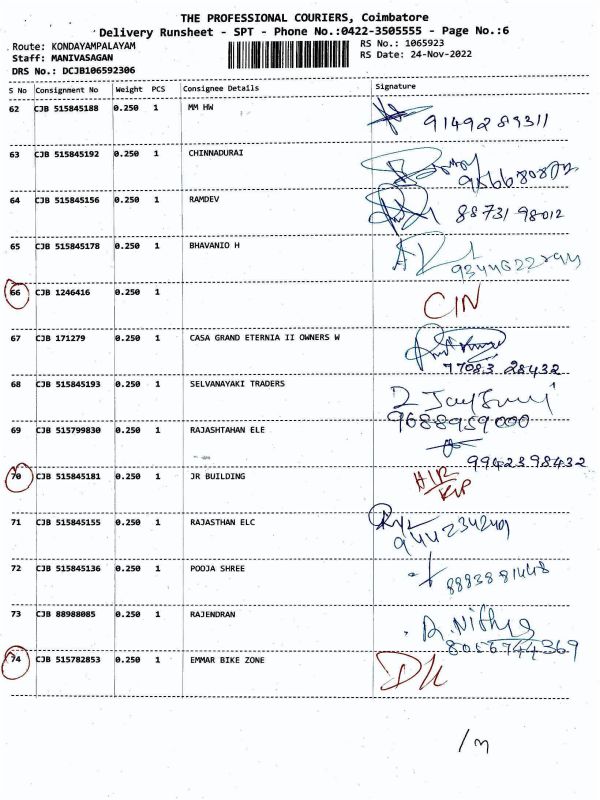 THE PROFESSIONAL COURIERS, Coimbatore
Delivery Runsheet - SPT - Phone No.:0422-3505555 - Page No.:6
Route: KONDAYAMPALAYAM
RS No.: 1065923
Staff: MANIVASAGAN
RS Date: 24-Nov-2022
DRS No.: DCJB106592306
S No Consignment No Weight PCS Consignee Details Signature
62 CJB 515845188 0.250 1 MM HW
9149289311
63 CJB 515845192 0.250 1 CHINNADURAI
64 CJB 515845156 0.250 1 RAMDEV
88731 98012
65 CJB 515845178 0.250 1 BHAVANIO H
66 CJB 1246416 0.250 1 CIN
67 CJB 171279 0.250 1 CASA GRAND ETERNIA II OWNERS W
77083 28432
68 CJB 515845193 0.250 1 SELVANAYAKI TRADERS
9688959000
69 CJB 515799830 0.250 1 RAJASHTAHAN ELE
9942398432
70 CJB 515845181 0.250 1 JR BUILDING
71 CJB 515845155 0.250 1 RAJASTHAN ELC
9442234249
72 CJB 515845136 0.250 1 POOJA SHREE
8883881448
73 CJB 88988085 0.250 1 RAJENDRAN
R.Nithya
8056744369
74 CJB 515782853 0.250 1 EMMAR BIKE ZONE
DL